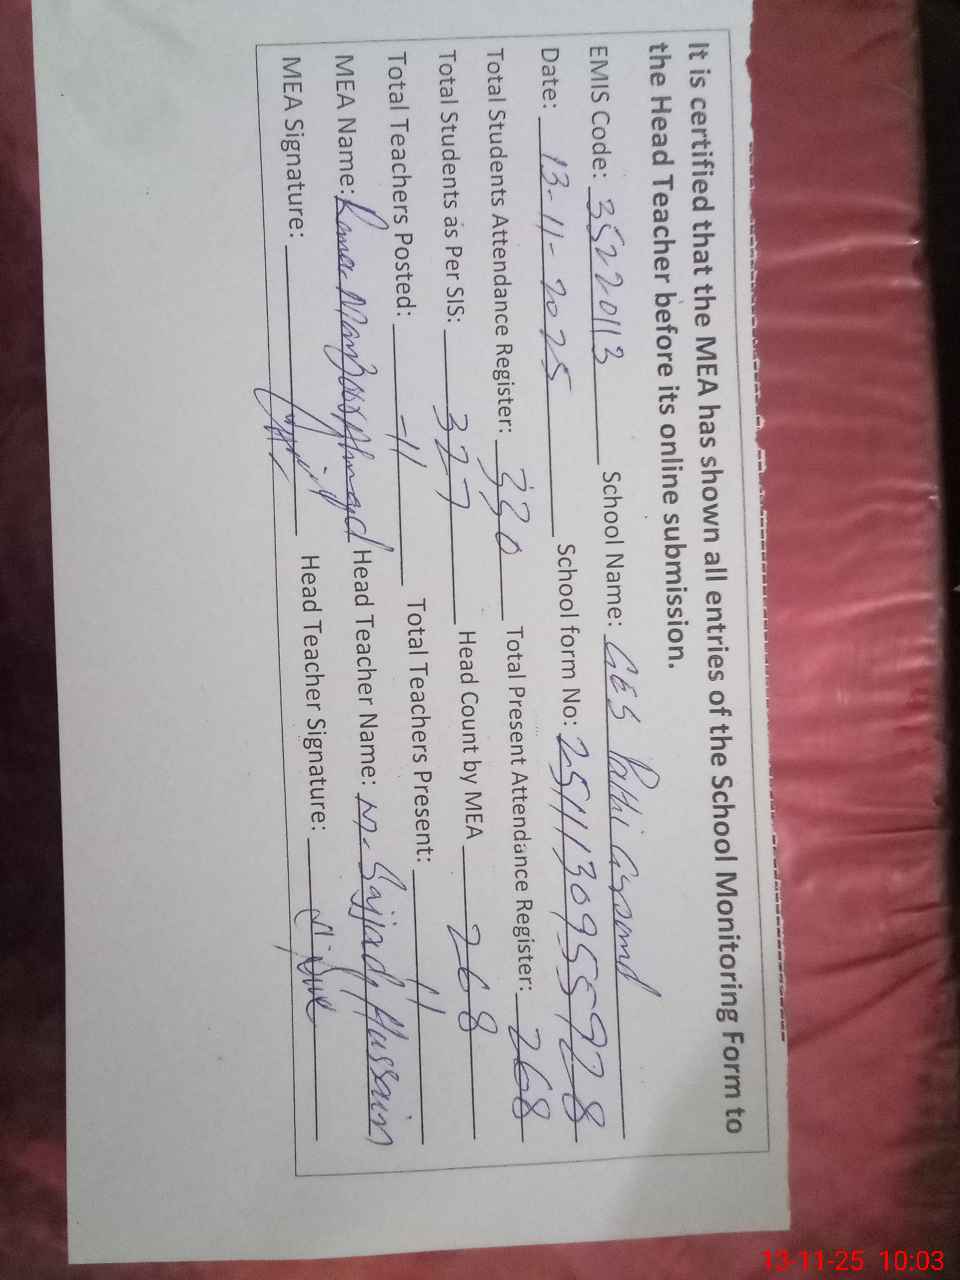 It is certified that the MEA has shown all entries of the School Monitoring Form to
the Head Teacher before its online submission.
EMIS Code: 35220113 School Name: GES Pathi
Date: 13-11-2025 School form No: 2511130955928
Total Students Attendance Register: 330 Total Present Attendance Register: 268
Total Students as Per SIS: 327 Head Count by MEA 268
Total Teachers Posted: 11 Total Teachers Present: 11
MEA Name: Manzoor Ahmad Head Teacher Name: M. Sajjad Hussain
MEA Signature: Head Teacher Signature:
13-11-25 10:03